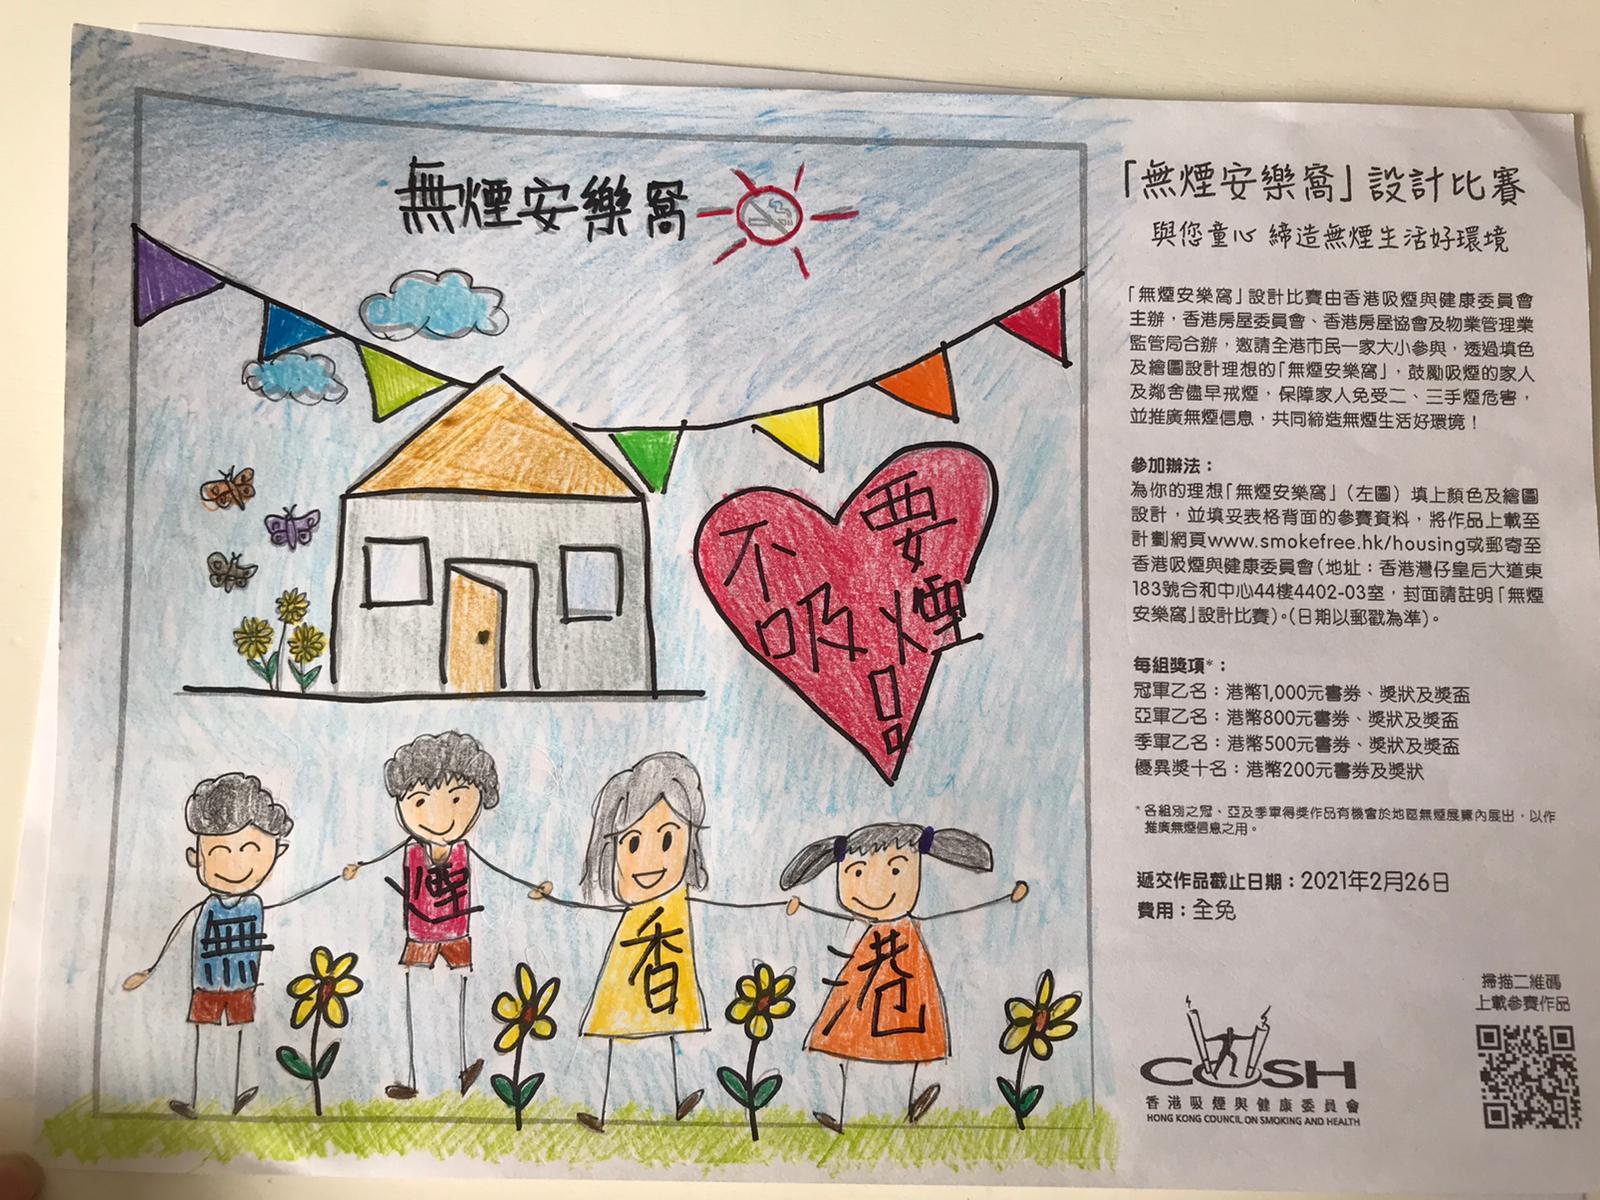 無煙安樂窩
不要
吸煙!
無
煙
香
港
「無煙安樂窩」設計比賽
與您童心 締造無煙生活好環境
「無煙安樂窩」設計比賽由香港吸煙與健康委員會
主辦，香港房屋委員會、香港房屋協會及物業管理業
監管局合辦，邀請全港市民一家大小參與，透過填色
及繪圖設計理想的「無煙安樂窩」，鼓勵吸煙的家人
及鄰舍儘早戒煙，保障家人免受二、三手煙危害，
並推廣無煙信息，共同締造無煙生活好環境！
參加辦法：
為你的理想「無煙安樂窩」（左圖）填上顏色及繪圖
設計，並填妥表格背面的參賽資料，將作品上載至
計劃網頁www.smokefree.hk/housing或郵寄至
香港吸煙與健康委員會（地址：香港灣仔皇后大道東
183號合和中心44樓4402-03室，封面請註明「無煙
安樂窩」設計比賽）。（日期以郵戳為準）。
每組獎項*：
冠軍乙名：港幣1,000元書券、獎狀及獎盃
亞軍乙名：港幣800元書券、獎狀及獎盃
季軍乙名：港幣500元書券、獎狀及獎盃
優異獎十名：港幣200元書券及獎狀
*各組別之冠、亞及季軍得獎作品有機會於地區無煙展覽內展出，以作
推廣無煙信息之用。
遞交作品截止日期：2021年2月26日
費用：全免
掃描二維碼
上載參賽作品
COSH
香港吸煙與健康委員會
HONG KONG COUNCIL ON SMOKING AND HEALTH